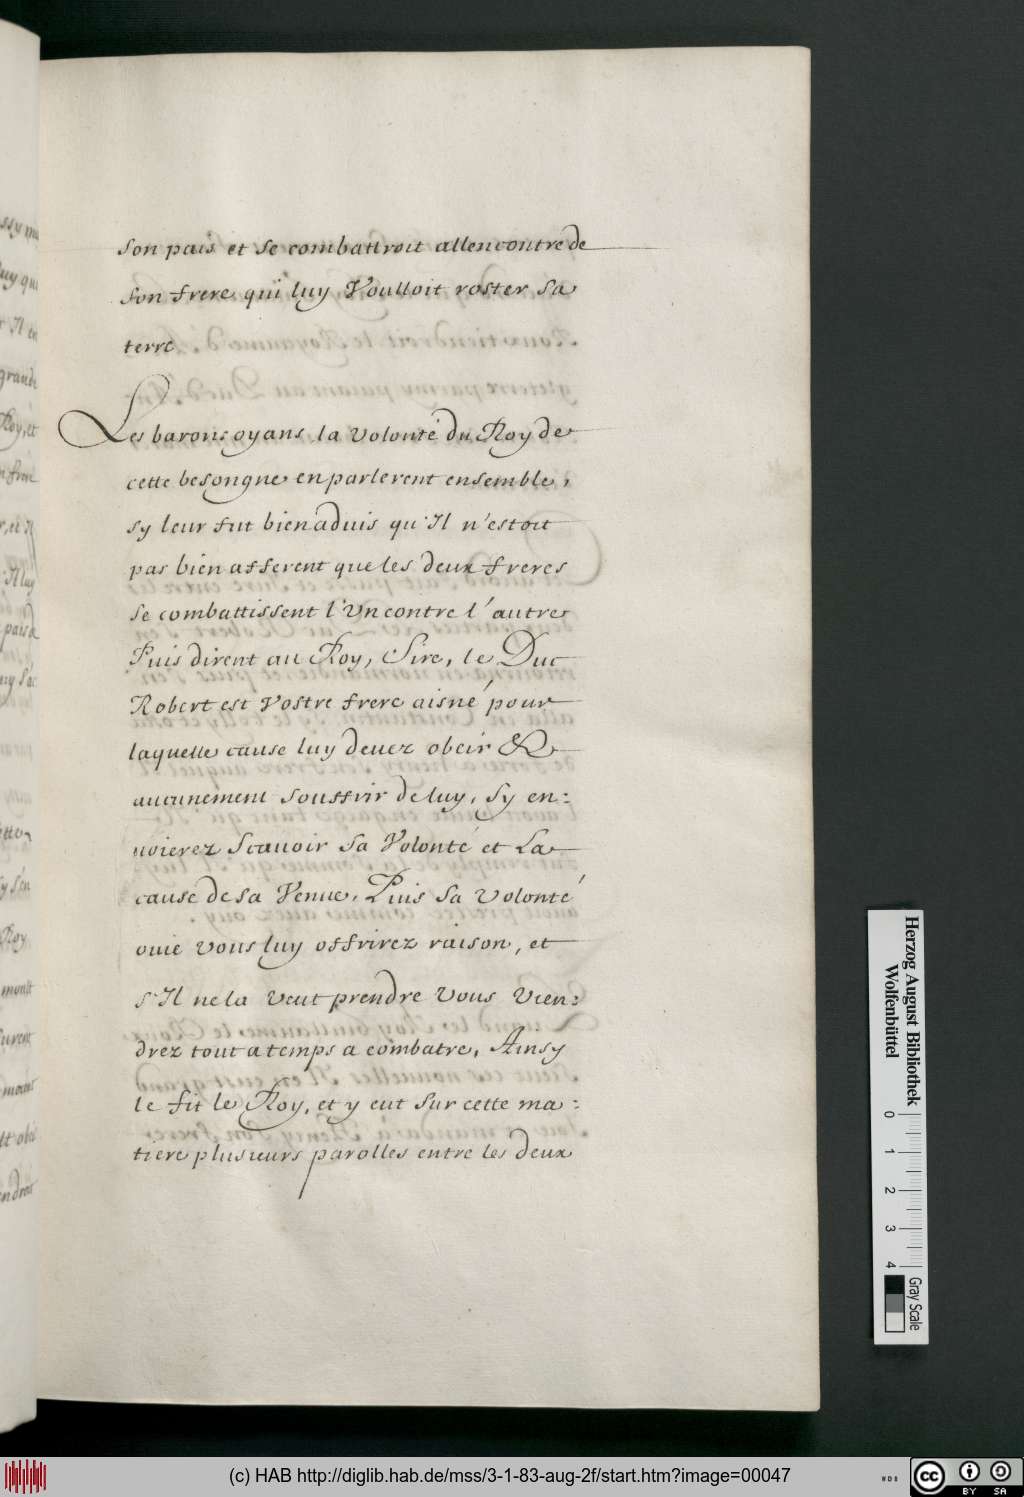 son païs et se combattroit allencontre de
son frere qui luy Voulloit roster sa
terre
Les barons oyans la volonté du Roy de
cette besongne en parlerent ensemble,
sy leur fut bien aduis qu'Il n'estoit
pas bien afferent que les deux freres
se combattissent l'Un contre l'autre
Puis dirent au Roy, Sire, le Duc
Robert est Vostre frere aisné pour
laquelle cause luy deuez obeir &
aucunement souffrir de luy, sy en:
uoierez scauoir sa Volonté et La
cause de sa Venue, Puis sa volonté
ouie vous luy offrirez raison, et
s'Il ne la veut prendre Vous vien:
drez tout a temps a combatre, Ainsy
le fit le Roy, et y eut sur cette ma:
tiere plusieurs parolles entre les deux
Herzog August Bibliothek
Wolfenbüttel
0 1 2 3 4
Gray Scale
(c) HAB http://diglib.hab.de/mss/3-1-83-aug-2f/start.htm?image=00047
cc BY SA